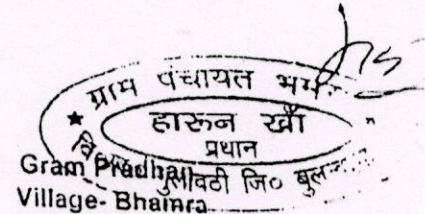 ★ ग्राम पंचायत
हारून खाँ
प्रधान
गुलावठी जि०
Gram Pradhan
Village- Bhamra